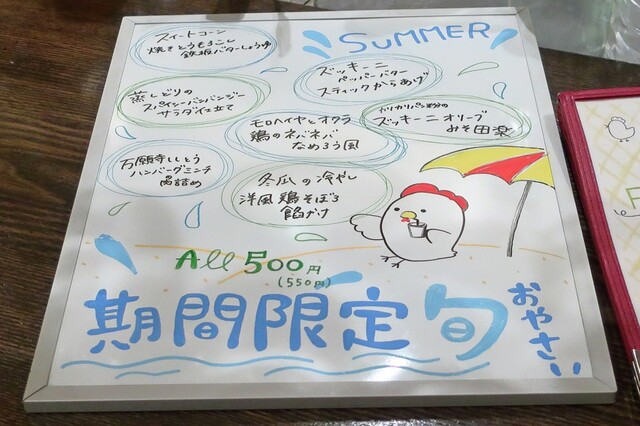 SUMMER
スイートコーン
焼きとうもろこし
鉄板バターしょうゆ
ズッキーニ
ペッパーバター
スティックからあげ
蒸しどりの
スパイシーバンバンジー
サラダ仕立て
モロヘイヤとオクラ
鶏のネバネバ
なめろう風
カリカリパン粉の
ズッキーニオリーブ
みそ田楽
万願寺ししとう
ハンバーグミンチ
肉詰め
冬瓜の冷やし
洋風鶏そぼろ
餡だけ
All 500円
(550円)
期間限定旬
おやさい